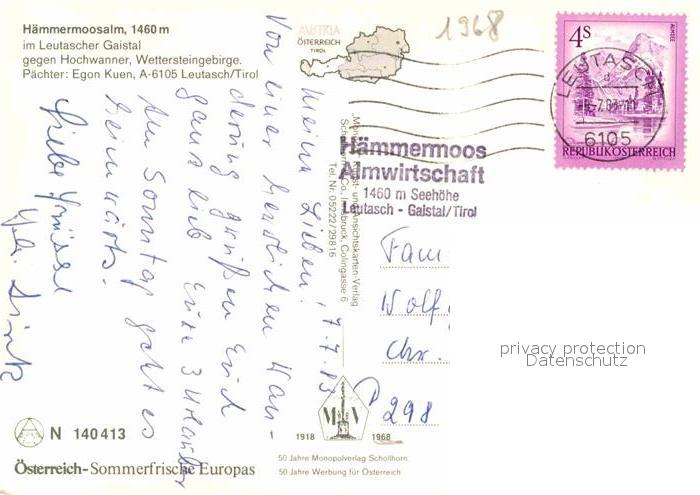 Hämmermoosalm, 1460 m
im Leutascher Gaistal
gegen Hochwanner, Wettersteingebirge.
Pächter: Egon Kuen, A-6105 Leutasch/Tirol
AUSTRIA
ÖSTERREICH
TIROL
1968
4S
ALMSEE
REPUBLIK ÖSTERREICH
LEUTASCH
6105
Hämmermoos
Almwirtschaft
1460 m Seehöhe
Leutasch - Gaistal/Tirol
Kunst- und Ansichtskarten-Verlag
Co., Innsbruck, Colingasse 6
Tel. Nr. 05222/29816
7.7.83
Meine Lieben!
Von einer herrlichen Wan-
derung grüßen Euch
ganz lieb Eure 3 Urlauber
Am Sonntag geht es
heimwärts.
Liebe Grüsse
Fam.
Wolf.
Chr.
298
privacy protection
Datenschutz
N 140413
1918 MV 1968
50 Jahre Monopolverlag Schollhorn
50 Jahre Werbung für Österreich
Österreich-Sommerfrische Europas